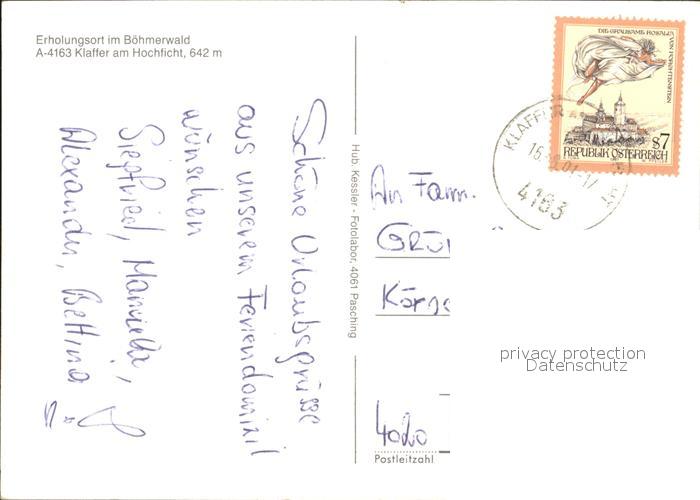 Erholungsort im Böhmerwald
A-4163 Klaffer am Hochficht, 642 m
Schöne Urlaubsgrüsse
aus unserem Feriendomizil
wünschen
Siegfried,
Alexander, Bettina
Hub. Kessler - Fotolabor, 4061 Pasching
DIE GRAUSAME ROSALIA
VON FORCHTENSTEIN
S7
REPUBLIK ÖSTERREICH
KLAFFER
4163
An Fam.
4020
Postleitzahl
privacy protection
Datenschutz